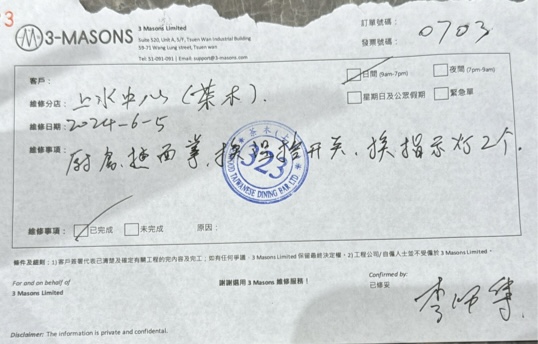 3
3-MASONS
3 Masons Limited
Suite 520, Unit A, 5/F, Tsuen Wan Industrial Building
59-71 Wang Lung street, Tsuen wan
Tel: 31-091-091 | Email: support@3-masons.com
訂單號碼：
發票號碼： 0703
客戶：
日間 (9am-7pm) 夜間 (7pm-9am)
維修分店： 上水中心(茶木).
星期日及公眾假期 緊急單
維修日期： 2024-6-5
維修事項： 厨房, 换指示灯2个.
323
TAIWANESE DINING BAR LTD
維修事項： 已完成 未完成 原因：
條件及細則：1) 客戶簽署代表已清楚及確定有關工程的完內容及完工；如有任何爭議，3 Masons Limited 保留最終決定權。2) 工程公司/自僱人士並不受僱於 3 Masons Limited。
For and on behalf of
3 Masons Limited
謝謝選用 3 Masons 維修服務！
Confirmed by:
已維妥
李师傅
Disclaimer: The information is private and confidential.